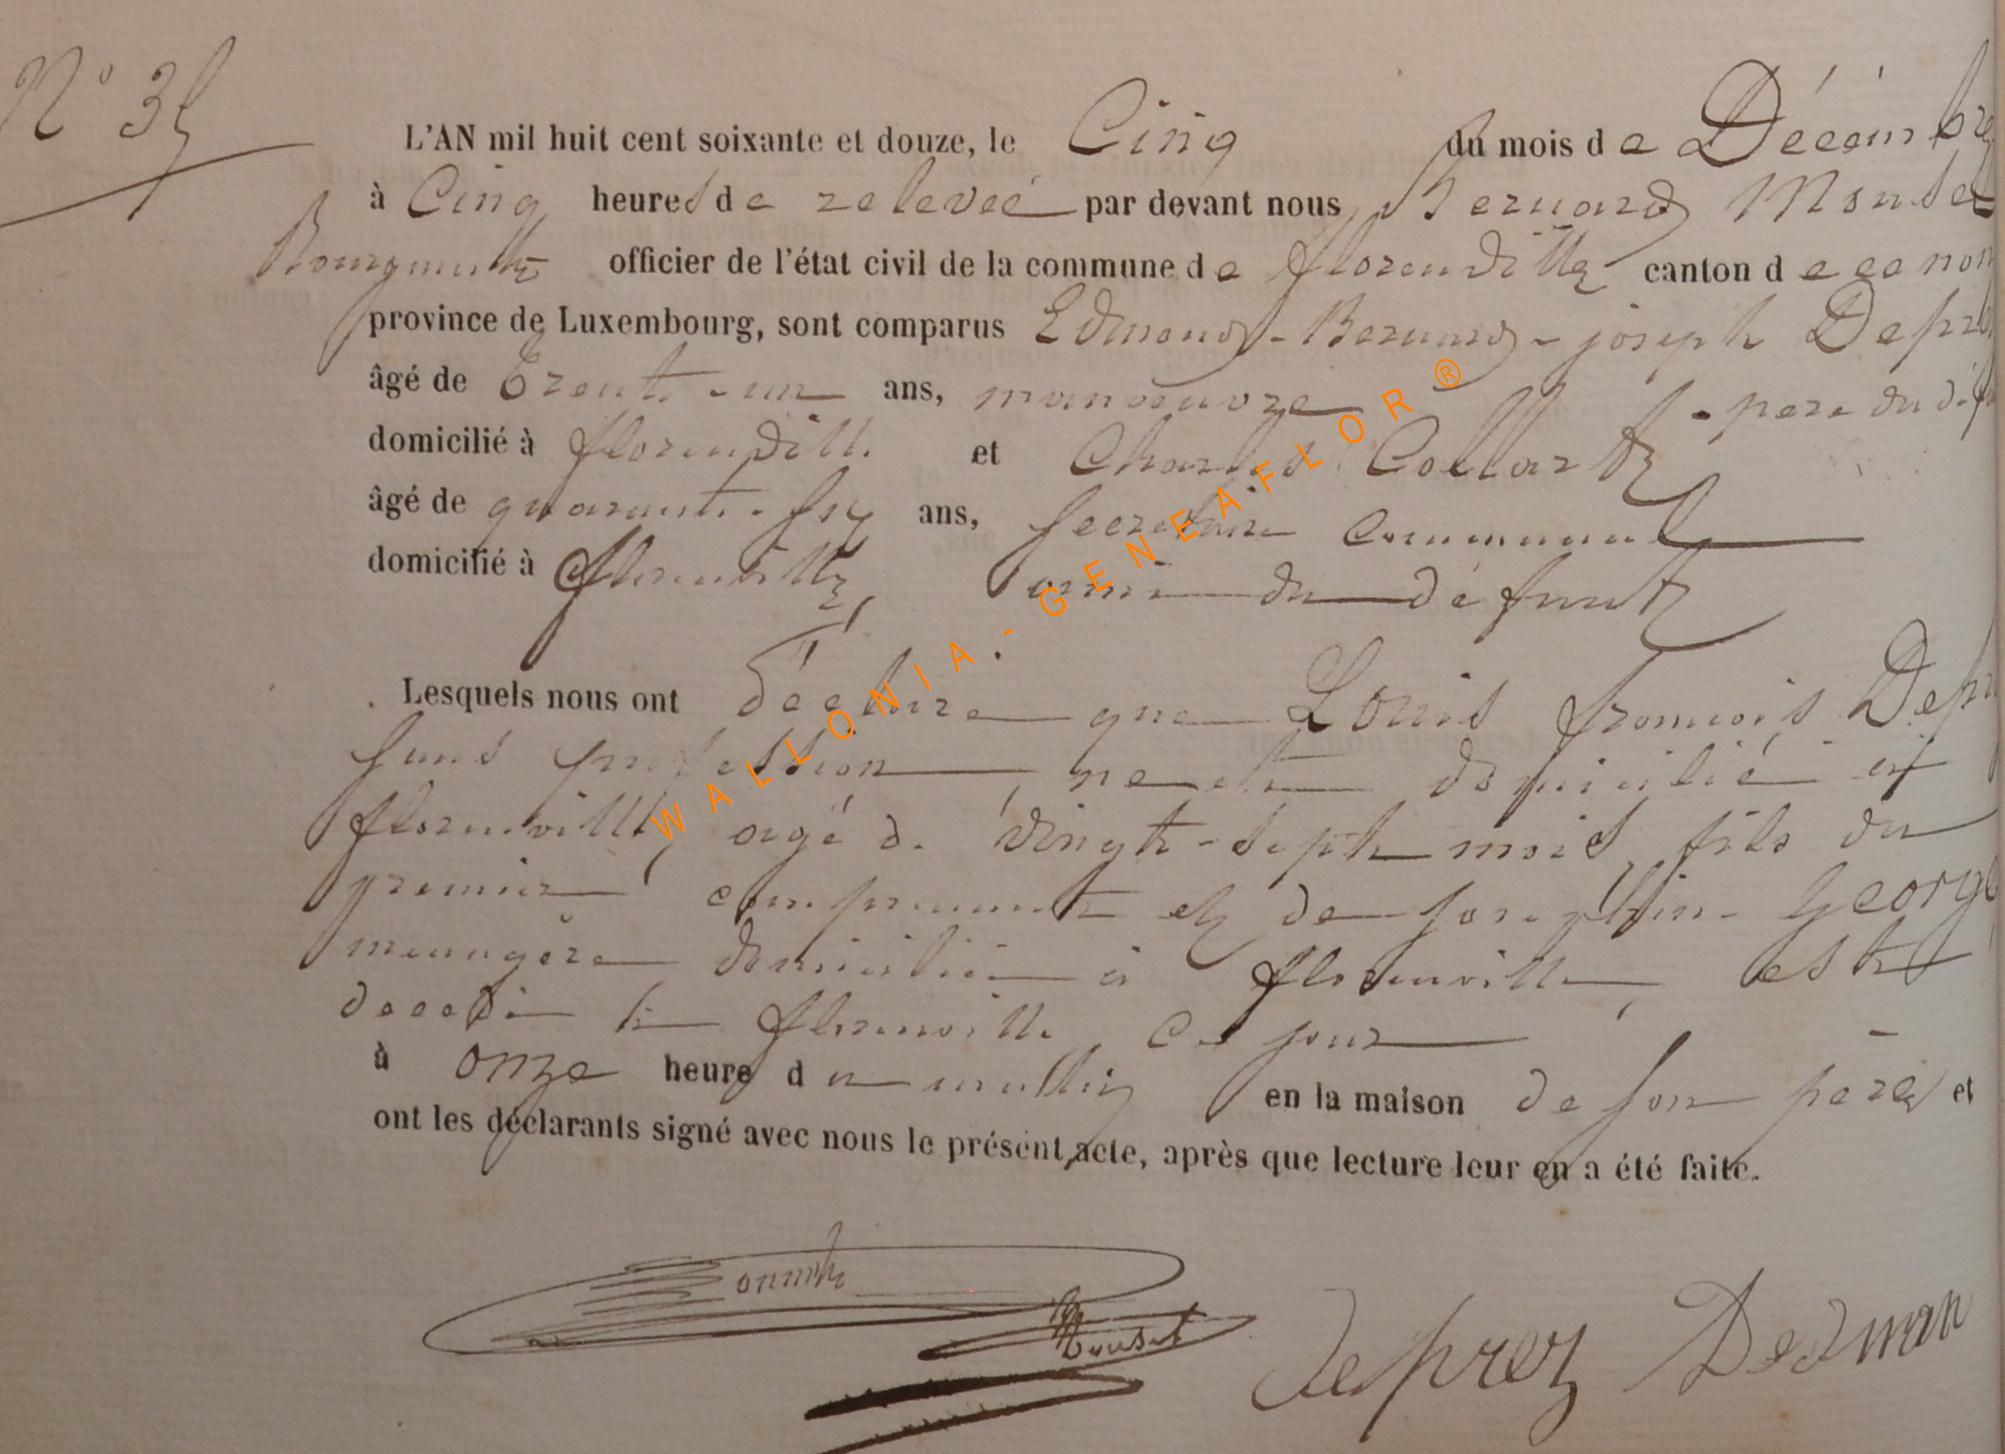 N° 35
L'AN mil huit cent soixante et douze, le Cinq du mois de Décembre
à Cinq heures de relevée par devant nous Bernard Mouset
Bourgmestre officier de l'état civil de la commune de florenville canton de ce nom
province de Luxembourg, sont comparus Edmond-Bernard-joseph Depre
âgé de trente-un ans, manoeuvre - pere du déf
domicilié à florenville et Charles Collart
âgé de quarante-six ans, secrétaire Communal
domicilié à florenville, ami du défunt
Lesquels nous ont déclaré que Louis françois Dep
sans profession né et domicilié à
florenville, agé de vingt-sept mois, fils du
premier comparant et de josephine George
menagère domiciliée à florenville, est
decedé à florenville ce jour
à onze heures du matin en la maison de son père et
ont les déclarants signé avec nous le présent acte, après que lecture leur en a été faite.
Mouset
deprez Dedman
WALLONIA-GENEAFLOR®